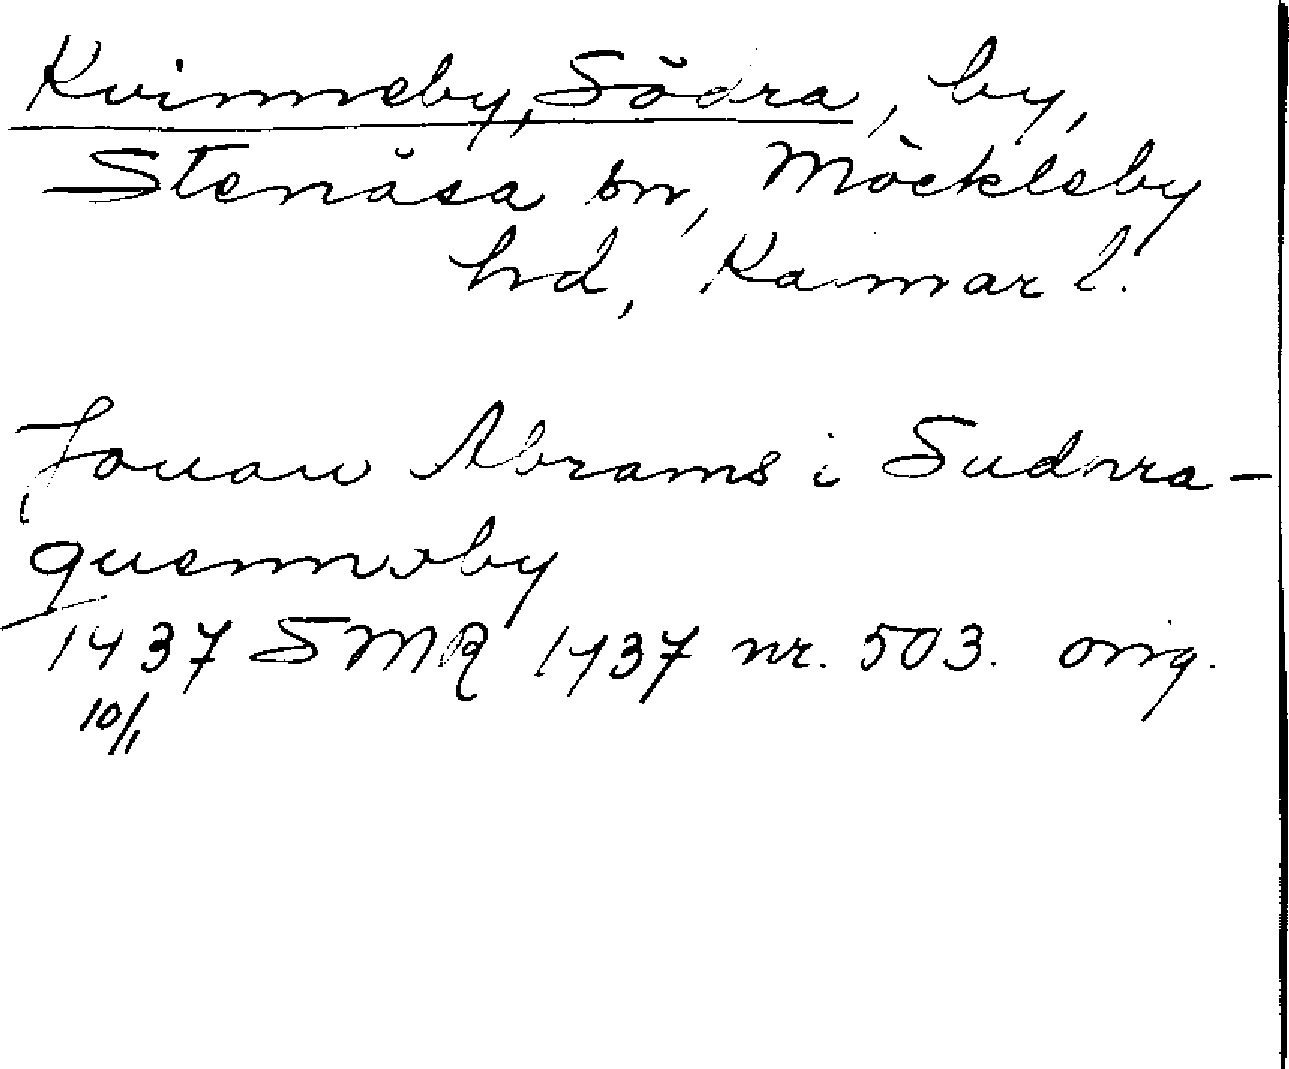 Kvinneby, Södra, by,
Stenåsa sn, Möckleby
hd, Kalmar l.
Jouan Abrams i Sudhra-
quennoby
1437 SMR 1437 nr. 503. orig.
10/1